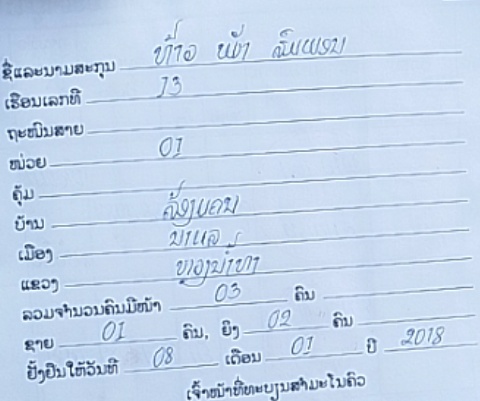 ຊື່ແລະນາມສະກຸນ ທ້າວ ໜຳ
ເຮືອນເລກທີ 13
ຖະໜົນສາຍ
ໜ່ວຍ 01
ຄຸ້ມ
ບ້ານ
ເມືອງ ນາແລ
ແຂວງ ຫຼວງນ້ຳທາ
ລວມຈຳນວນຄົນມີໜ້າ 03 ຄົນ
ຊາຍ 01 ຄົນ, ຍິງ 02 ຄົນ
ຢັ້ງຢືນໃຫ້ວັນທີ 08 ເດືອນ 01 ປີ 2018
ເຈົ້າໜ້າທີ່ທະບຽນສຳມະໂນຄົວ